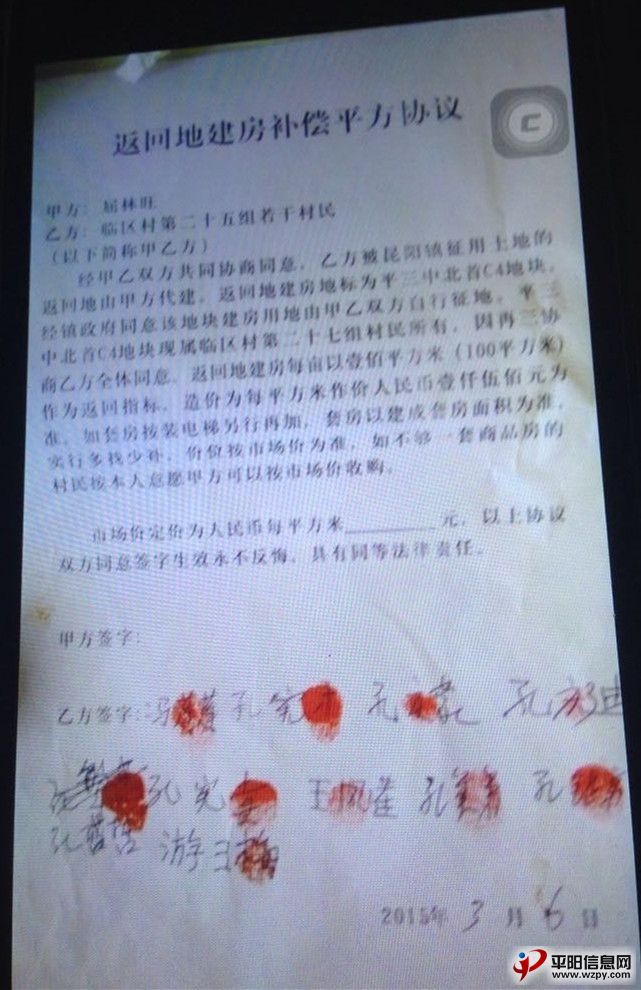 返回地建房补偿平方协议
甲方：屈林旺
乙方：临区村第二十五组若干村民
（以下简称甲乙方）
经甲乙双方共同协商同意，乙方被昆阳镇征用土地的
返回地由甲方代建，返回地建房地标为平三中北首C4地块，
经镇政府同意该地块建房用地由甲乙双方自行征地。平三
中北首C4地块现属临区村第二十七组村民所有，因再三协
商乙方全体同意，返回地建房每亩以壹佰平方米（100平方米）
作为返回指标，造价为每平方米作价人民币壹仟伍佰元为
准，如套房按装电梯另行再加，套房以建成套房面积为准，
实行多找少补，价位按市场价为准，如不够一套商品房的
村民按本人意愿甲方可以按市场价收购。
市场价定价为人民币每平方米________元，以上协议
双方同意签字生效永不反悔，具有同等法律责任。
甲方签字：
乙方签字：冯 孔宪 孔 孔
孔宪 王凤 孔 孔
孔 游
2015年3月6日
平阳信息网
www.wzpy.com